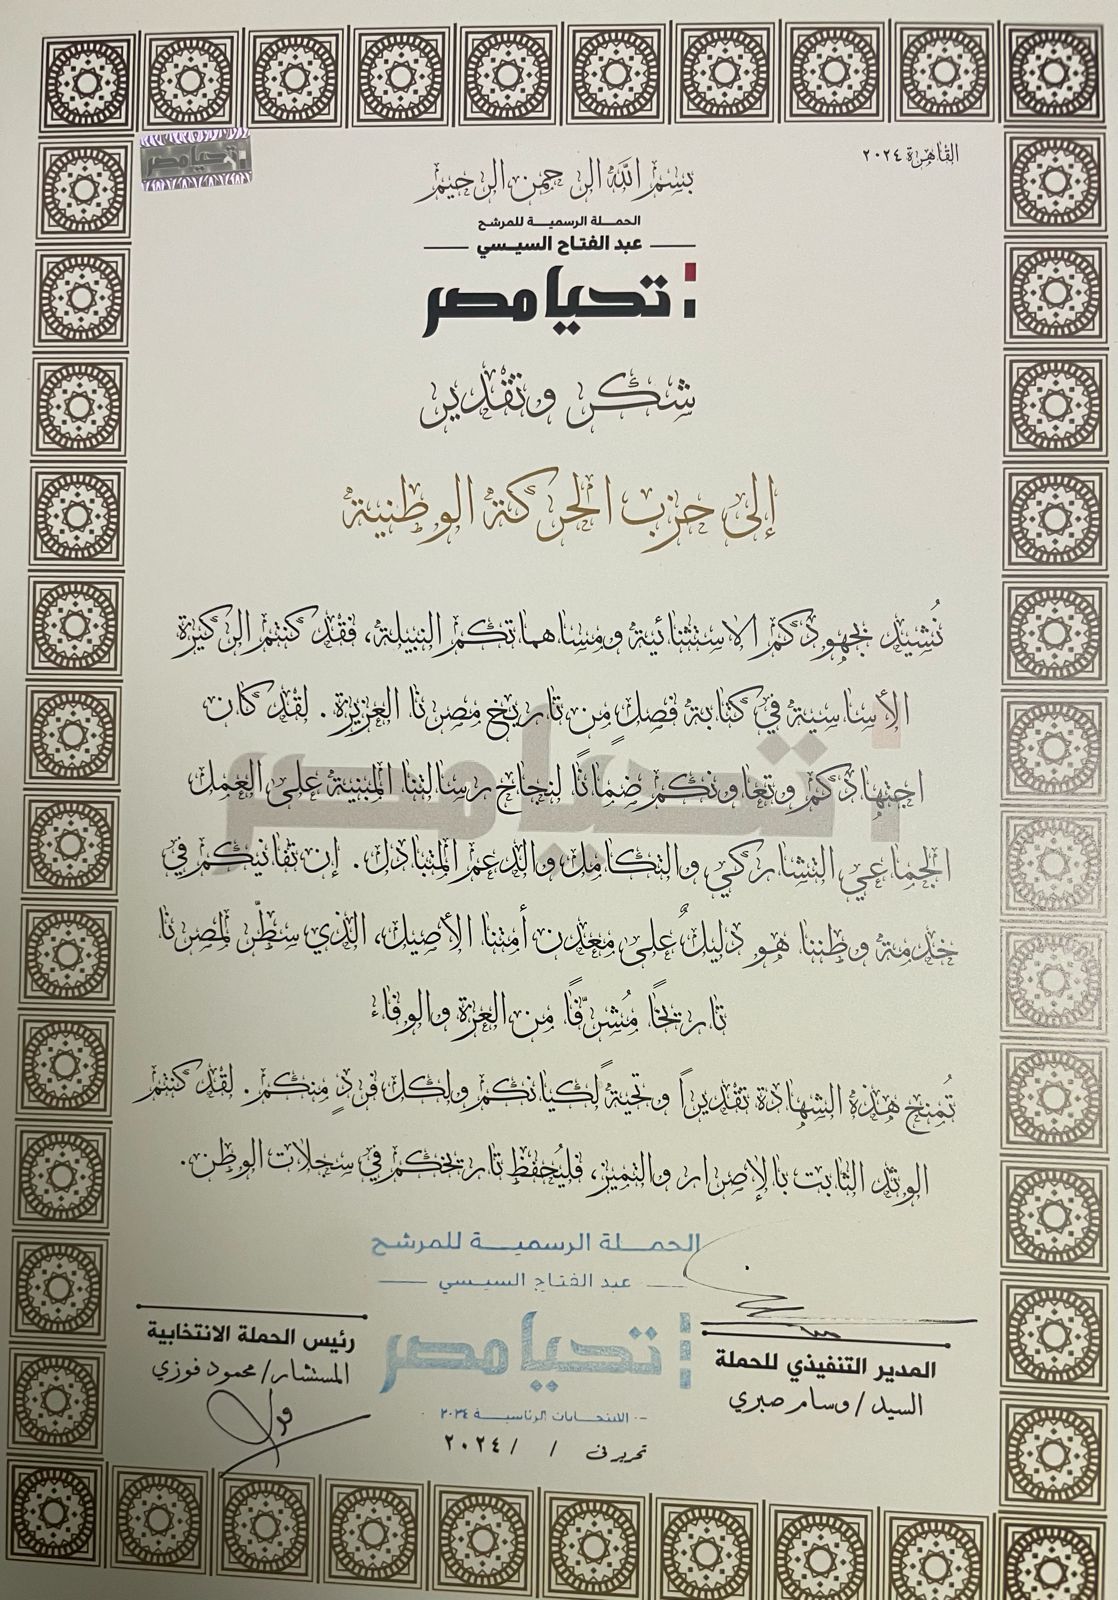 القاهرة ٢٠٢٤
تحيا مصر
بسم الله الرحمن الرحيم
الحملة الرسمية للمرشح
عبد الفتاح السيسي
تحيا مصر
شكر وتقدير
إلى حزب الحركة الوطنية
نُشيد بجهودكم الاستثنائية ومساهماتكم النبيلة، فقد كنتم الركيزة
الأساسية في كتابة فصلٍ من تاريخ مصرنا العزيزة. لقد كان
اجتهادكم وتعاونكم ضمانًا لنجاح رسالتنا المبنية على العمل
تحيا مصر
الجماعي التشاركي والتكامل والدعم المتبادل. إن تفانيكم في
خدمة وطننا هو دليلٌ على معدن أمتنا الأصيل، الذي سطّر لمصرنا
تاريخًا مُشرّفًا من العزة والوفاء
تُمنح هذه الشهادة تقديراً وتحيةً لكيانكم ولكل فردٍ منكم. لقد كنتم
الوتد الثابت بالإصرار والتميز، فليُحفظ تاريخكم في سجلات الوطن.
الحملة الرسمية للمرشح
عبد الفتاح السيسي
تحيا مصر
الانتخابات الرئاسية ٢٠٢٤
تحرير في / / ٢٠٢٤
المدير التنفيذي للحملة
السيد / وسام صبري
رئيس الحملة الانتخابية
المستشار/ محمود فوزي